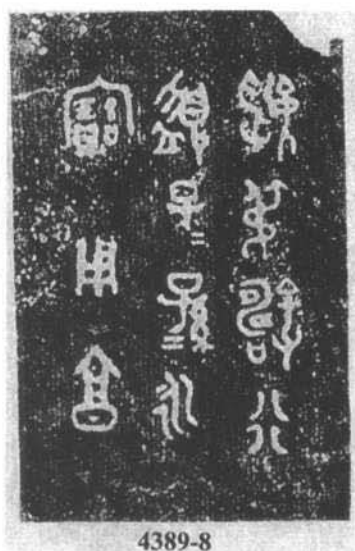 虢叔鑄行
盨子=孫=永
寶用享
4389-8